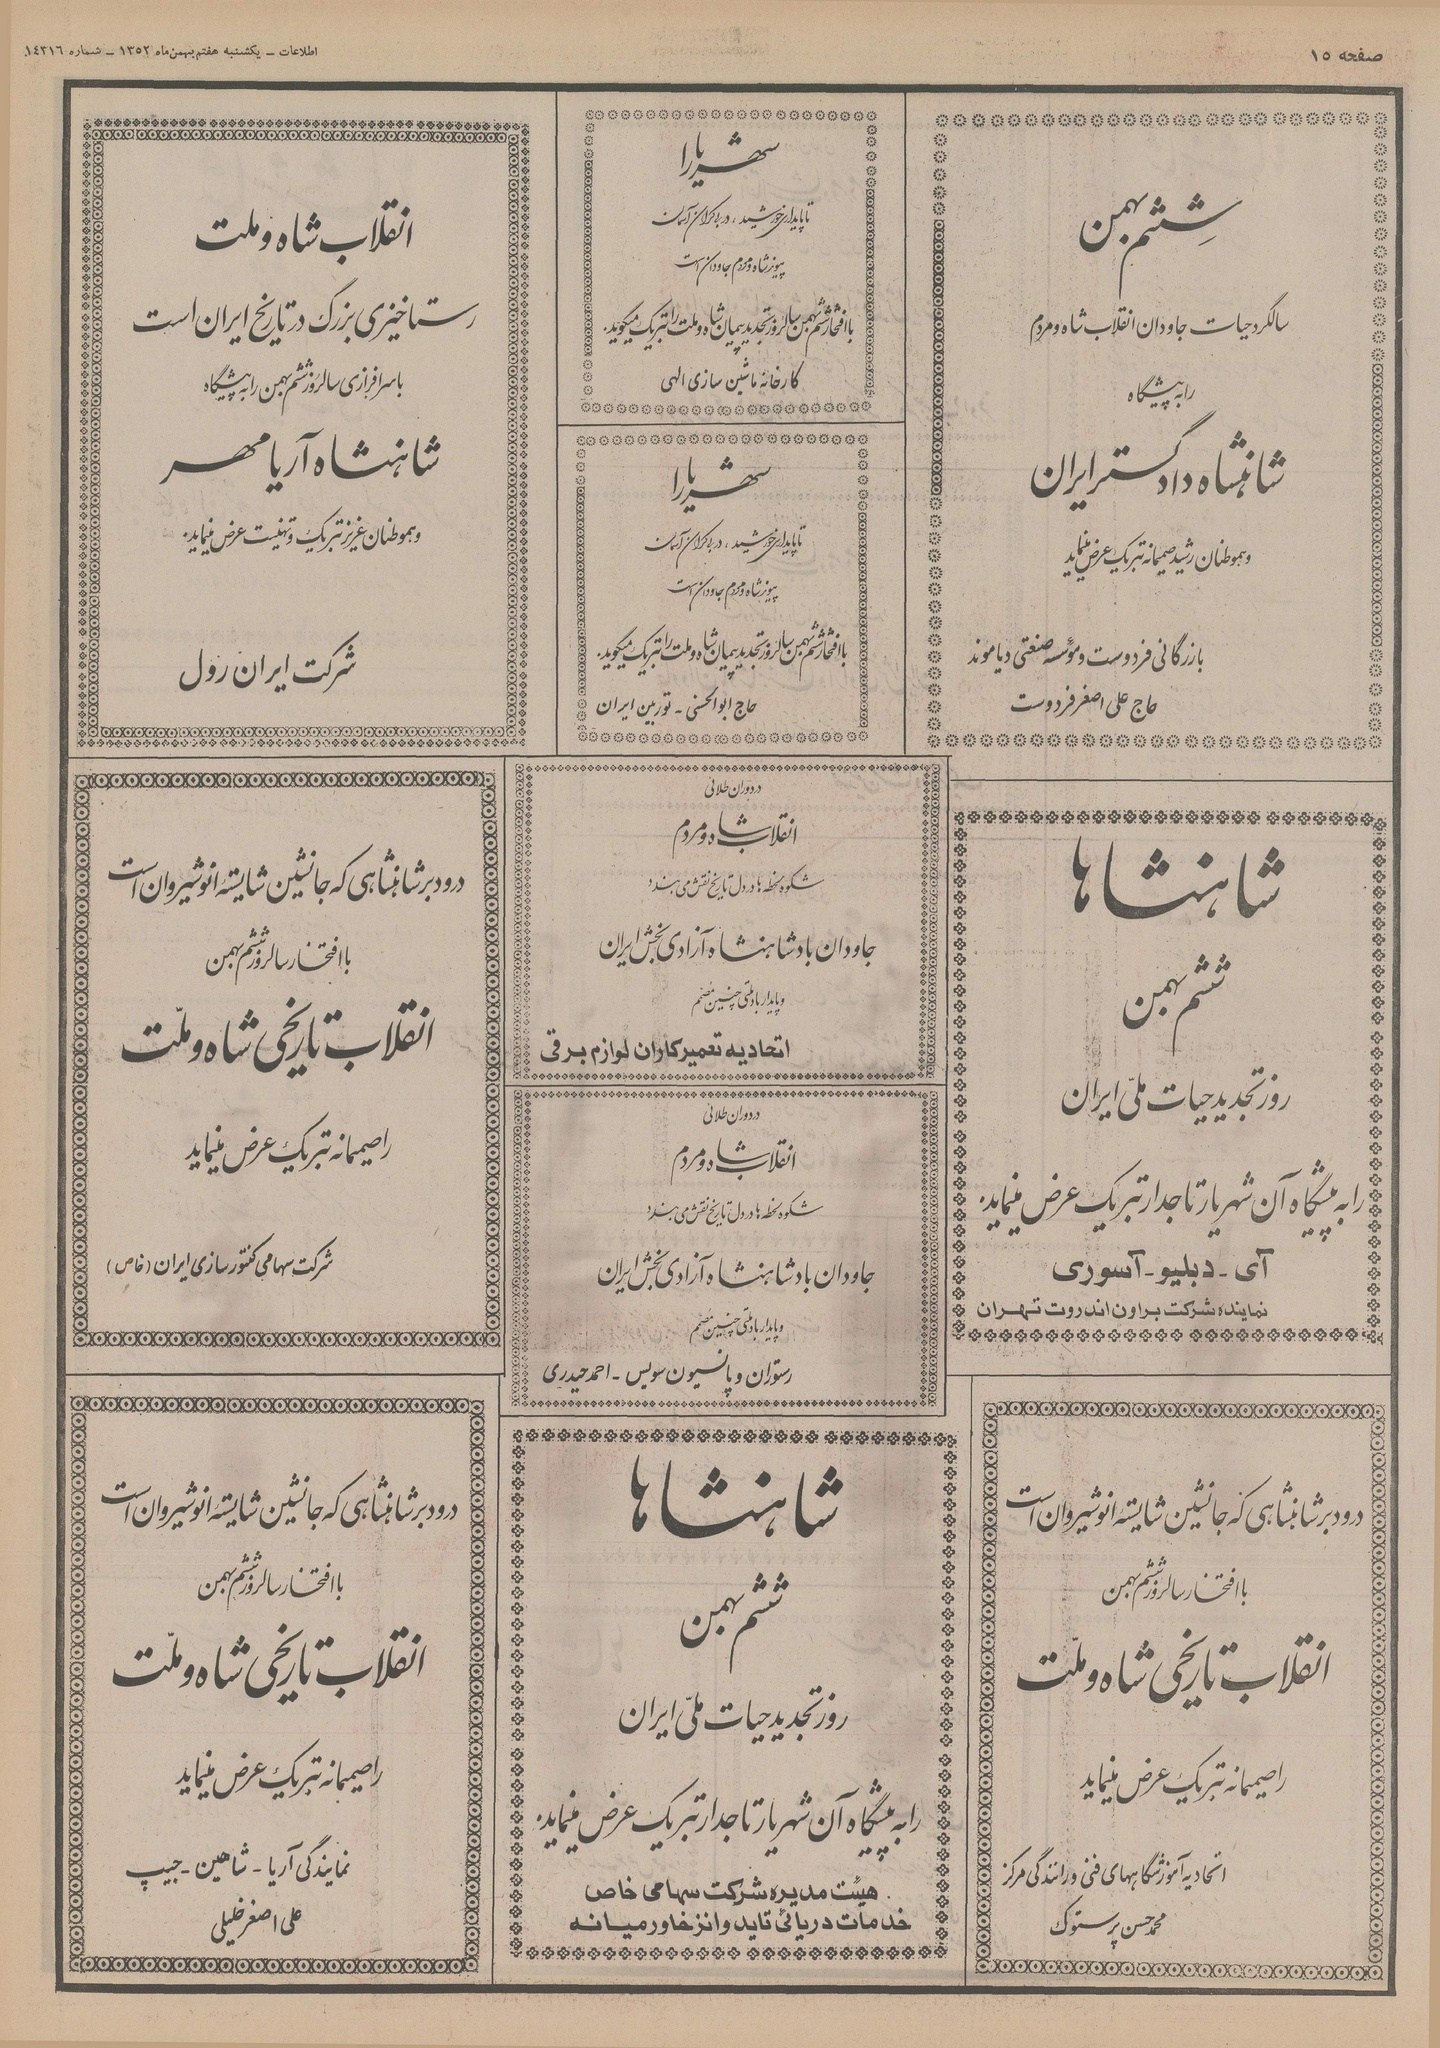 صفحه ۱۵
اطلاعات ـ یکشنبه هفتم بهمن ماه ۱۳۵۲ ـ شماره ۱۴۳۱۶
ششم بهمن
سالگرد حیات جاودان انقلاب شاه و مردم
را به پیشگاه
شاهنشاه دادگستر ایران
و هموطنان رشید صمیمانه تبریک عرض مینماید
بازرگانی فردوست و مؤسسه صنعتی دیاموند
حاج علی اصغر فردوست
شهریارا
تا پایداری خورشید ، در بیکران آسمان
پیوند شاه و مردم جاودان است
با افتخار ششم بهمن سالروز تجدید پیمان شاه و ملت را تبریک میگوید.
کارخانه ماشین سازی الهی
شهریارا
تا پایداری خورشید ، در بیکران آسمان
پیوند شاه و مردم جاودان است
با افتخار ششم بهمن سالروز تجدید پیمان شاه و ملت را تبریک میگوید.
حاج ابوالحسنی ـ توربین ایران
انقلاب شاه و ملت
رستاخیزی بزرگ در تاریخ ایران است
با سرافرازی سالروز ششم بهمن را به پیشگاه
شاهنشاه آریامهر
و هموطنان عزیز تبریک و تهنیت عرض مینماید.
شرکت ایران رول
شاهنشاها
ششم بهمن
روز تجدید حیات ملّی ایران
را به پیشگاه آن شهریار تاجدار تبریک عرض مینماید.
آی ـ دبلیو ـ آسوری
نماینده شرکت براون اندروت تهران
در دوران طلائی
انقلاب شاه و مردم
شکوه لحظه ها در دل تاریخ نقش می بندد
جاودان باد شاهنشاه آزادی بخش ایران
و پایدار باد ملتی چنین مصمم
اتحادیه تعمیرکاران لوازم برقی
در دوران طلائی
انقلاب شاه و مردم
شکوه لحظه ها در دل تاریخ نقش می بندد
جاودان باد شاهنشاه آزادی بخش ایران
و پایدار باد ملتی چنین مصمم
رستوران و پانسیون سویس ـ احمد حیدری
درود بر شاهنشاهی که جانشین شایسته انوشیروان است
با افتخار سالروز ششم بهمن
انقلاب تاریخی شاه و ملّت
را صمیمانه تبریک عرض مینماید
شرکت سهامی کنتور سازی ایران (خاص)
درود بر شاهنشاهی که جانشین شایسته انوشیروان است
با افتخار سالروز ششم بهمن
انقلاب تاریخی شاه و ملّت
را صمیمانه تبریک عرض مینماید
اتحادیه آموزشگاههای فنی و رانندگی مرکز
محمد حسن پرستوک
شاهنشاها
ششم بهمن
روز تجدید حیات ملّی ایران
را به پیشگاه آن شهریار تاجدار تبریک عرض مینماید.
هیئت مدیره شرکت سهامی خاص
خدمات دریائی تاید وانز خاورمیانه
درود بر شاهنشاهی که جانشین شایسته انوشیروان است
با افتخار سالروز ششم بهمن
انقلاب تاریخی شاه و ملّت
را صمیمانه تبریک عرض مینماید
نمایندگی آریا ـ شاهین ـ جیپ
علی اصغر خلیلی